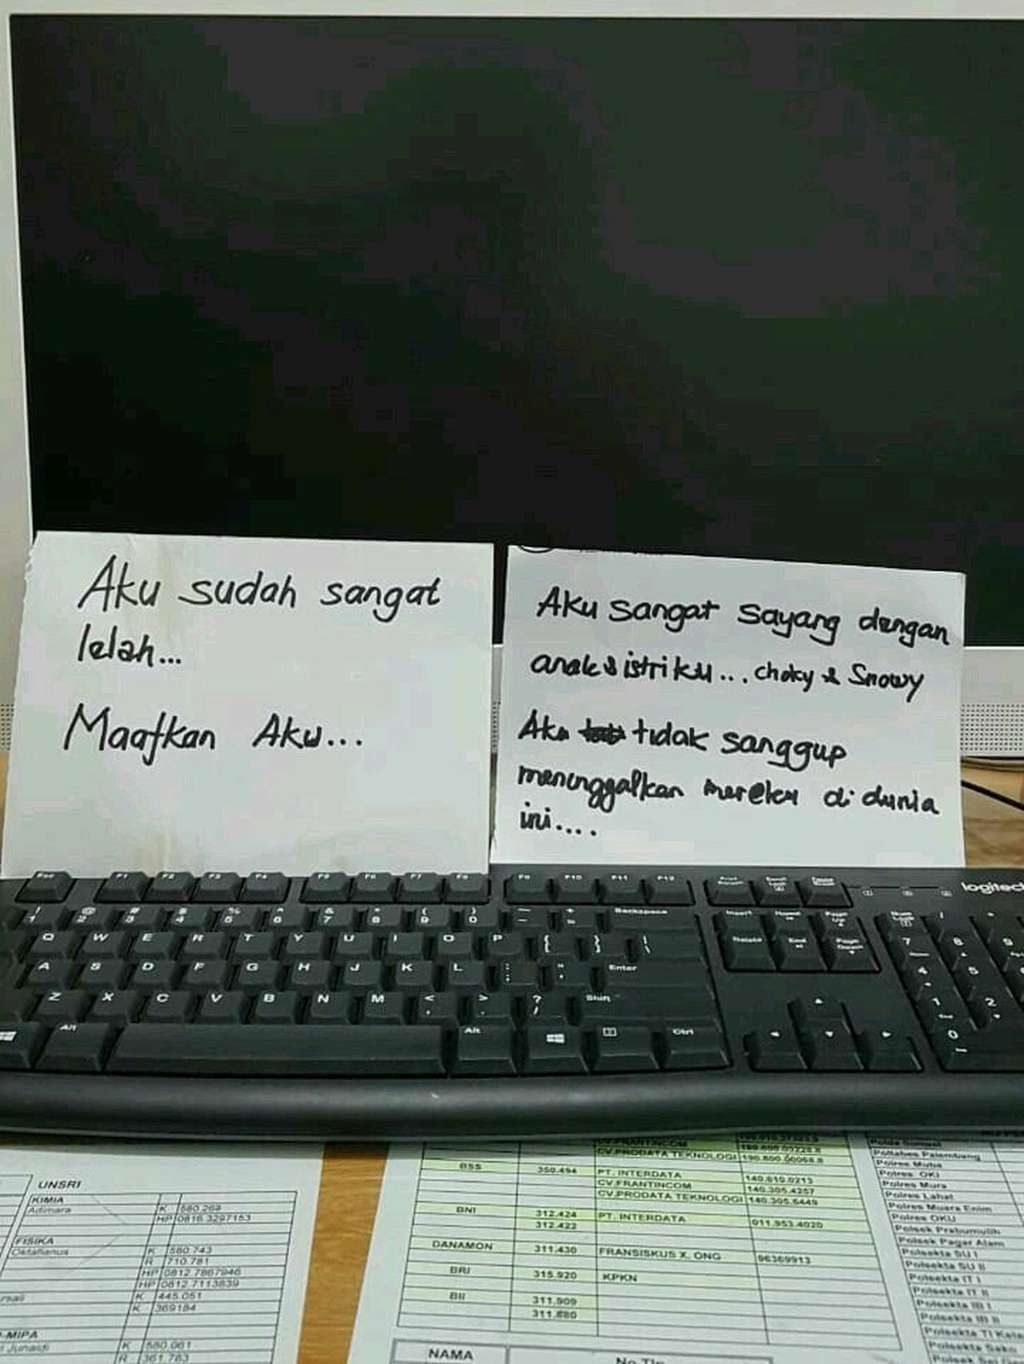 Aku sudah sangat
lelah...
Maafkan Aku...
Aku sangat sayang dengan
anak & istriku... choky & Snowy
Aku tidak sanggup
meninggalkan mereka di dunia
ini....
logitech
Backspace
Enter
Shift
Alt
Alt
Ctrl
UNSRI
KIMIA
Adimara
K 580.269
HP 0816.3297153
FISIKA
Oktafianus
K 580.743
R 710.781
HP 0812.7867946
HP 0812.7113839
K 445.051
K 369184
K 580.061
R 361.783
CV.FRANTINCOM
CV.PRODATA TEKNOLOGI
BSS 350.494 PT. INTERDATA 140.010.0213
CV.FRANTINCOM 140.305.4257
CV.PRODATA TEKNOLOGI 140.305.5449
BNI 312.424 PT. INTERDATA 011.953.4020
312.422
DANAMON 311.430 FRANSISKUS X. ONG 96369913
BRI 315.920 KPKN
BII 311.909
311.880
NAMA
Poltabes Palembang
Polres Muba
Polres OKI
Polres Mura
Polres Lahat
Polres Muara Enim
Polres OKU
Polsek Prabumulih
Polsek Pagar Alam
Polsekta SU I
Polsekta SU II
Polsekta IT I
Polsekta IT II
Polsekta IB I
Polsekta IB II
Polsekta Sako